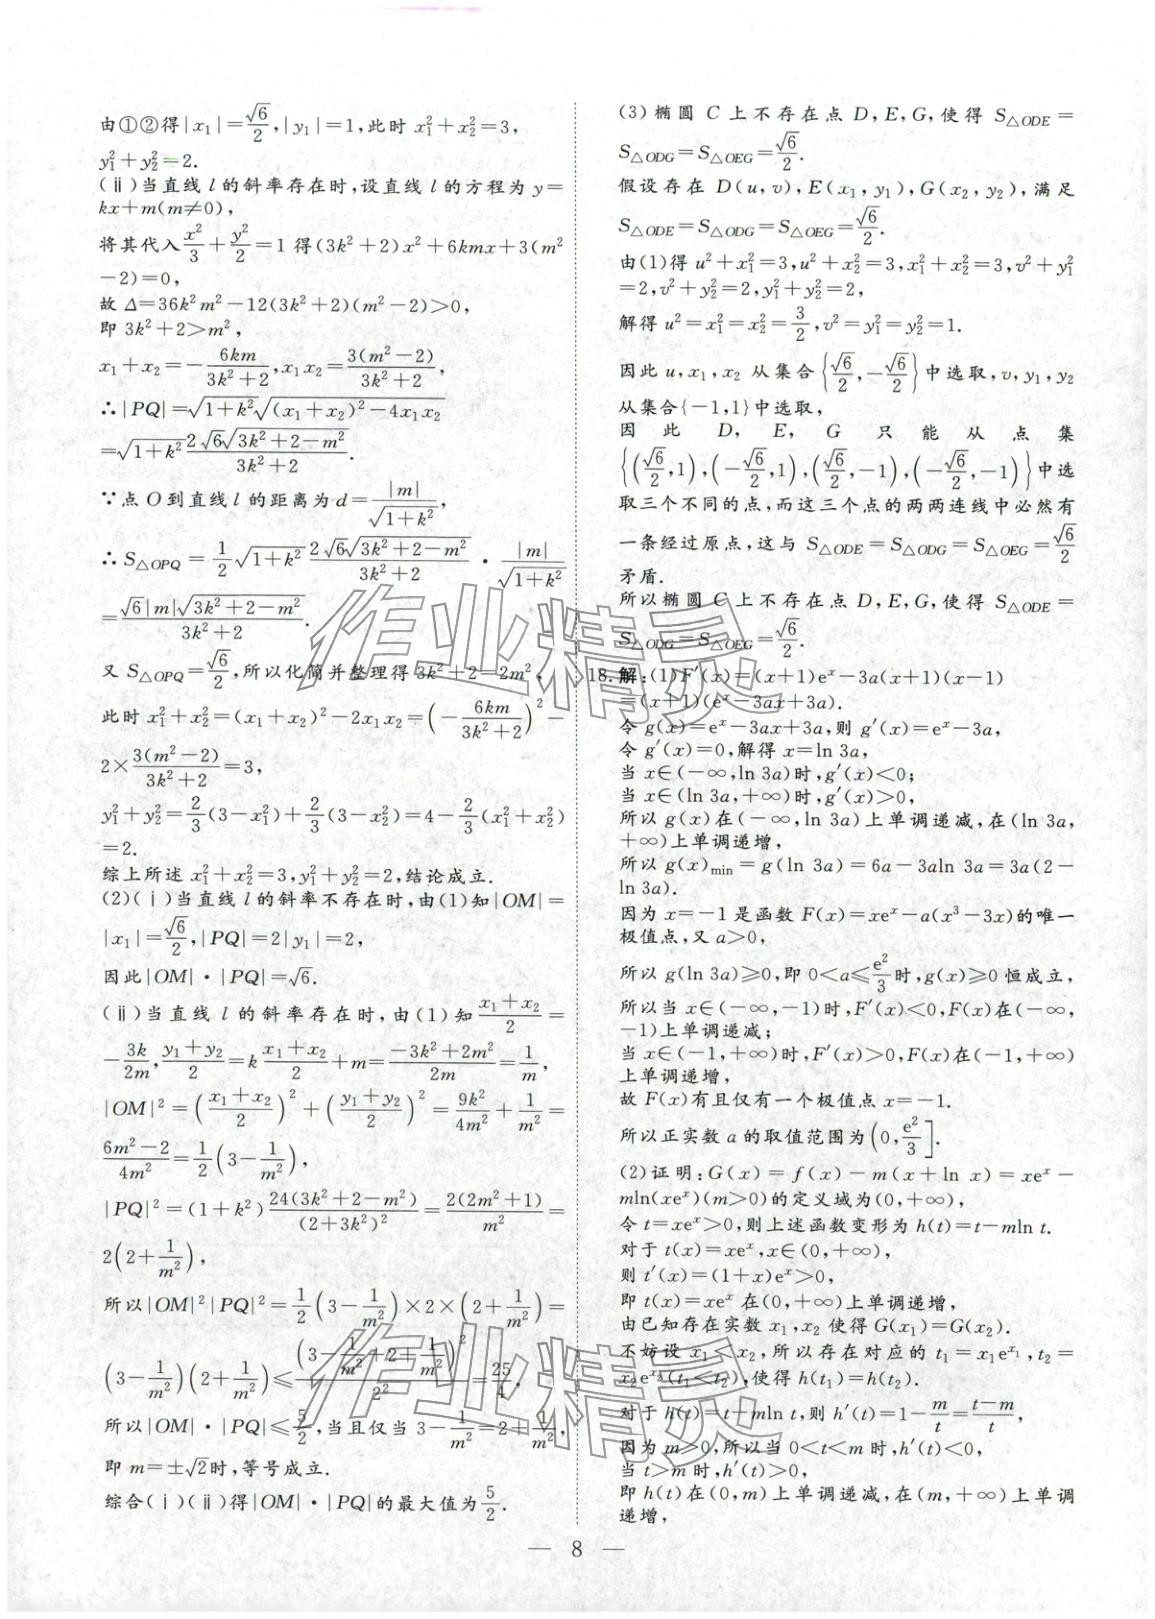 由①②得|x₁|=√6/2,|y₁|=1,此时 x₁²+x₂²=3,
y₁²+y₂²=2.
(ⅱ)当直线 l 的斜率存在时,设直线 l 的方程为 y=
kx+m(m≠0),
将其代入x²/3+y²/2=1 得(3k²+2)x²+6kmx+3(m²
-2)=0,
故 Δ=36k²m²-12(3k²+2)(m²-2)>0,
即 3k²+2>m²,
x₁+x₂=-6km/(3k²+2),x₁x₂=3(m²-2)/(3k²+2),
∴|PQ|=√(1+k²)√((x₁+x₂)²-4x₁x₂)
=√(1+k²) 2√6√(3k²+2-m²)/(3k²+2).
∵点 O 到直线 l 的距离为 d=|m|/√(1+k²),
∴S△OPQ=1/2√(1+k²) 2√6√(3k²+2-m²)/(3k²+2)·|m|/√(1+k²)
=√6|m|√(3k²+2-m²)/(3k²+2).
又 S△OPQ=√6/2,所以化简并整理得3k²+2=2m²,
此时 x₁²+x₂²=(x₁+x₂)²-2x₁x₂=(-6km/(3k²+2))²-
2×3(m²-2)/(3k²+2)=3,
y₁²+y₂²=2/3(3-x₁²)+2/3(3-x₂²)=4-2/3(x₁²+x₂²)
=2.
综上所述 x₁²+x₂²=3,y₁²+y₂²=2,结论成立.
(2)(ⅰ)当直线 l 的斜率不存在时,由(1)知|OM|=
|x₁|=√6/2,|PQ|=2|y₁|=2,
因此|OM|·|PQ|=√6.
(ⅱ)当直线 l 的斜率存在时,由(1)知(x₁+x₂)/2=
-3k/2m,(y₁+y₂)/2=k(x₁+x₂)/2+m=(-3k²+2m²)/2m=1/m,
|OM|²=((x₁+x₂)/2)²+((y₁+y₂)/2)²=9k²/4m²+1/m²=
(6m²-2)/4m²=1/2(3-1/m²),
|PQ|²=(1+k²)24(3k²+2-m²)/(2+3k²)²=2(2m²+1)/m²=
2(2+1/m²),
所以|OM|²|PQ|²=1/2(3-1/m²)×2×(2+1/m²)=
(3-1/m²)(2+1/m²)≤(3-1/m²+2+1/m²)²/2²=25/4.
所以|OM|·|PQ|≤5/2,当且仅当 3-1/m²=2+1/m²,
即 m=±√2时,等号成立.
综合(ⅰ)(ⅱ)得|OM|·|PQ|的最大值为5/2.
(3)椭圆 C 上不存在点 D,E,G,使得 S△ODE=
S△ODG=S△OEG=√6/2.
假设存在 D(u,v),E(x₁,y₁),G(x₂,y₂),满足
S△ODE=S△ODG=S△OEG=√6/2.
由(1)得 u²+x₁²=3,u²+x₂²=3,x₁²+x₂²=3,v²+y₁²
=2,v²+y₂²=2,y₁²+y₂²=2,
解得 u²=x₁²=x₂²=3/2,v²=y₁²=y₂²=1.
因此 u,x₁,x₂ 从集合{√6/2,-√6/2}中选取,v,y₁,y₂
从集合{-1,1}中选取,
因此 D,E,G 只能从点集
{(√6/2,1),(-√6/2,1),(√6/2,-1),(-√6/2,-1)}中选
取三个不同的点,而这三个点的两两连线中必然有
一条经过原点,这与 S△ODE=S△ODG=S△OEG=√6/2
矛盾.
所以椭圆 C 上不存在点 D,E,G,使得 S△ODE=
S△ODG=S△OEG=√6/2.
18.解:(1)F′(x)=(x+1)eˣ-3a(x+1)(x-1)
=(x+1)(eˣ-3ax+3a).
令 g(x)=eˣ-3ax+3a,则 g′(x)=eˣ-3a,
令 g′(x)=0,解得 x=ln 3a,
当 x∈(-∞,ln 3a)时,g′(x)<0;
当 x∈(ln 3a,+∞)时,g′(x)>0,
所以 g(x)在(-∞,ln 3a)上单调递减,在(ln 3a,
+∞)上单调递增,
所以 g(x)min=g(ln 3a)=6a-3aln 3a=3a(2-
ln 3a).
因为 x=-1 是函数 F(x)=xeˣ-a(x³-3x)的唯一
极值点,又 a>0,
所以 g(ln 3a)≥0,即 0<a≤e²/3时,g(x)≥0 恒成立,
所以当 x∈(-∞,-1)时,F′(x)<0,F(x)在(-∞,
-1)上单调递减;
当 x∈(-1,+∞)时,F′(x)>0,F(x)在(-1,+∞)
上单调递增,
故 F(x)有且仅有一个极值点 x=-1.
所以正实数 a 的取值范围为(0,e²/3].
(2)证明:G(x)=f(x)-m(x+ln x)=xeˣ-
mln(xeˣ)(m>0)的定义域为(0,+∞),
令 t=xeˣ>0,则上述函数变形为 h(t)=t-mln t.
对于 t(x)=xeˣ,x∈(0,+∞),
则 t′(x)=(1+x)eˣ>0,
即 t(x)=xeˣ 在(0,+∞)上单调递增,
由已知存在实数 x₁,x₂ 使得 G(x₁)=G(x₂).
不妨设 x₁<x₂,所以存在对应的 t₁=x₁e^x₁,t₂=
x₂e^x₂(t₁<t₂),使得 h(t₁)=h(t₂).
对于 h(t)=t-mln t,则 h′(t)=1-m/t=(t-m)/t,
因为 m>0,所以当 0<t<m 时,h′(t)<0,
当 t>m 时,h′(t)>0,
即 h(t)在(0,m)上单调递减,在(m,+∞)上单调
递增,
— 8 —
作业精灵
作业精灵